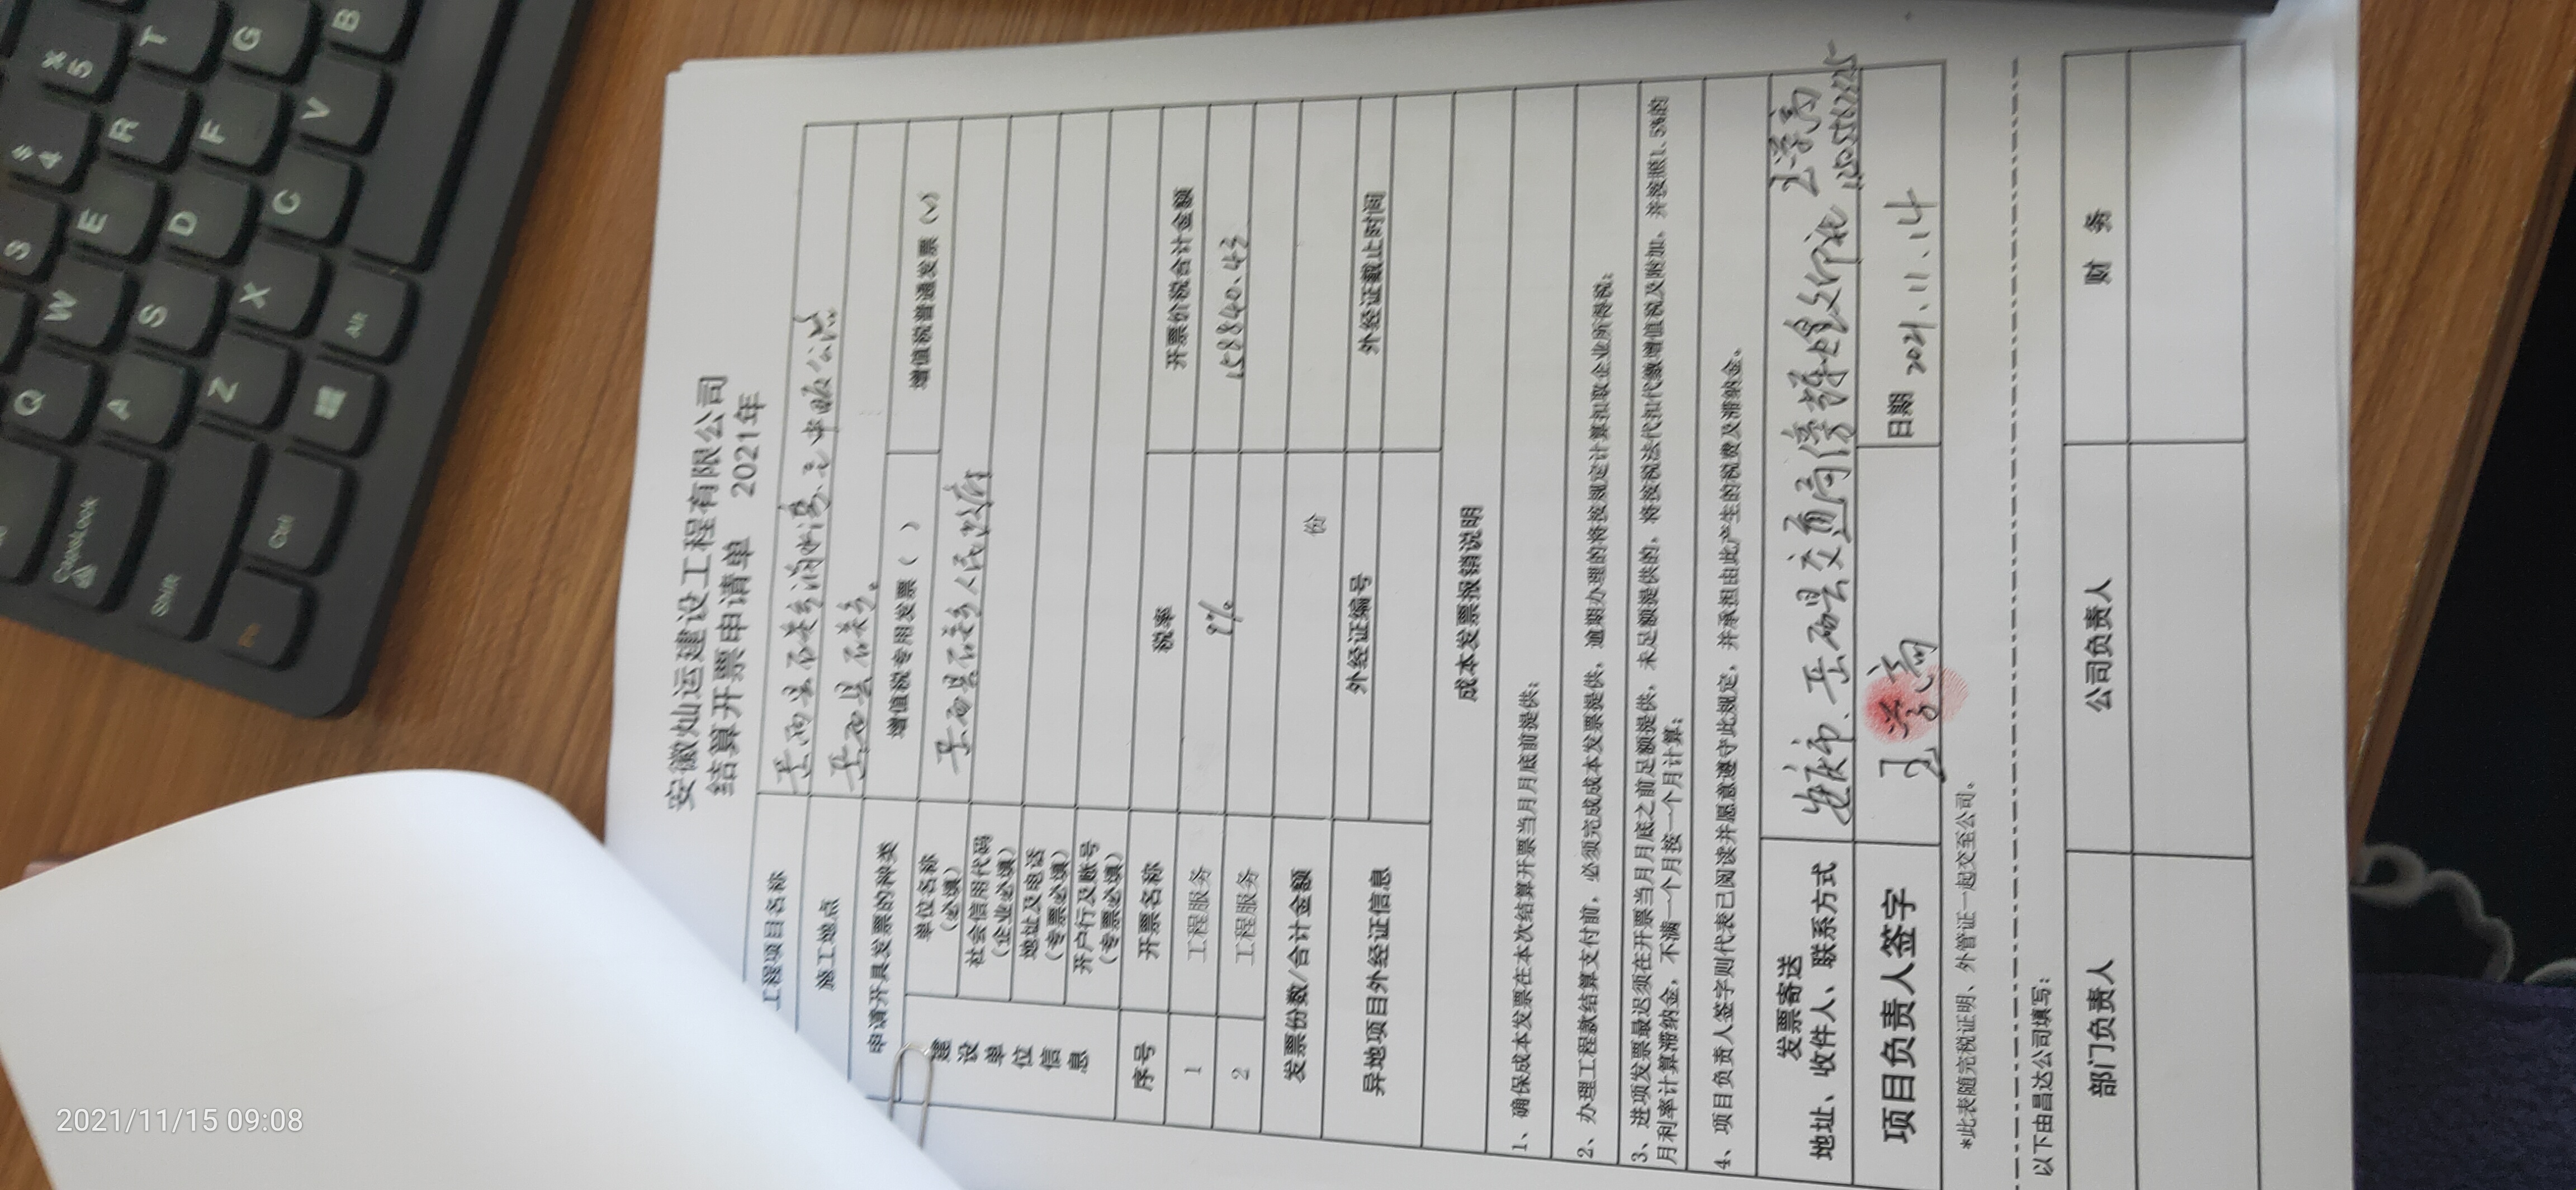 安徽灿运建设工程有限公司
结算开票申请单 2021年
工程项目名称
施工地点 岳西县石关乡。
申请开具发票的种类 增值税专用发票（ ） 增值税普通发票（√）
建设单位信息
单位名称（必填） 岳西县石关乡人民政府
社会信用代码（企业必填）
地址及电话（专票必填）
开户行及账号（专票必填）
序号 开票名称 税率 开票价税合计金额
1 工程服务 9% 158840.43
2 工程服务
发票份数/合计金额 份
异地项目外经证信息 外经证编号 外经证截止时间
成本发票报销说明
1、确保成本发票在本次结算开票当月月底前提供；
2、办理工程款结算支付前，必须完成成本发票提供，逾期办理的将按规定计算扣取企业所得税；
3、进项发票最迟须在开票当月月底之前足额提供，未足额提供的，将按税法代扣代缴增值税及附加，并按照1.5%的
月利率计算滞纳金，不满一个月按一个月计算；
4、项目负责人签字则代表已阅读并愿意遵守此规定，并承担由此产生的税费及滞纳金。
发票寄送
地址、收件人、联系方式 安庆市、岳西县交通局傍
项目负责人签字 日期 2021.11.14
*此表随完税证明、外管证一起交至公司。
以下由昌达公司填写：
部门负责人 公司负责人 财 务
T G B 5 4 R F V E D C S W S X Alt Q A Z CapsLock Shift Ctrl Fn
2021/11/15 09:08